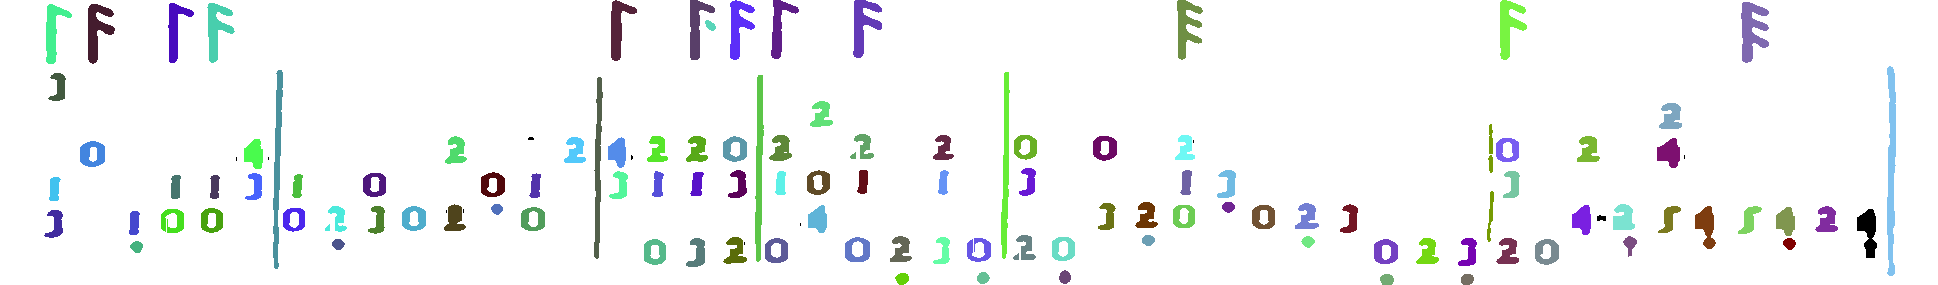 3
2 2
0 4 2 2 4 2 2 0 2 2 2 0 0 2 0 2 4
1 1 1 3 1 0 0 1 3 1 1 3 1 0 1 1 3 1 3 3
3 1 0 0 0 2 3 0 2 0 4 3 2 0 0 2 3 4 2 5 4 5 4 2 4
0 3 2 0 0 2 3 0 2 0 0 2 3 2 0